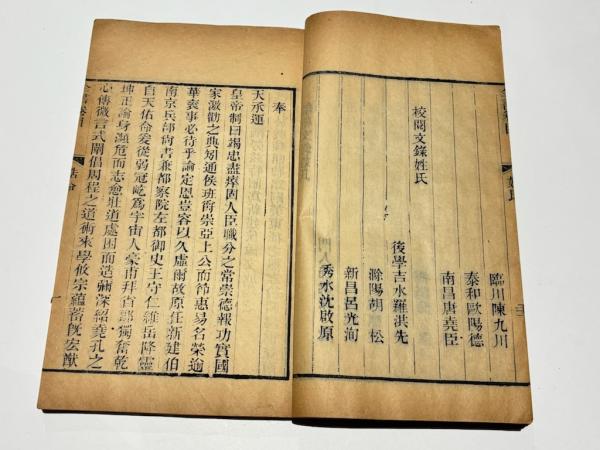 姓氏
臨川陳九川
泰和歐陽德
南昌唐堯臣
校閱文錄姓氏
後學吉水羅洪先
滁陽胡　松
新昌呂光洵
秀水沈啟原
奉
天承運
皇帝制曰竭忠盡瘁固人臣職分之常崇德報功實國
家激勸之典矧通侯班銜崇亞上公而節惠易名榮逾
華袞事必待乎論定恩豈容以久虛爾故原任新建伯
南京兵部尚書兼都察院左都御史王守仁維岳降靈
自天佑命爰從弱冠屹爲宇宙人豪甫拜省郎獨奮乾
坤正論身瀕危而志愈壯道處困而造彌深紹堯孔之
心傳微言式闡倡周程之道術來學攸宗蘊蓄旣宏猷